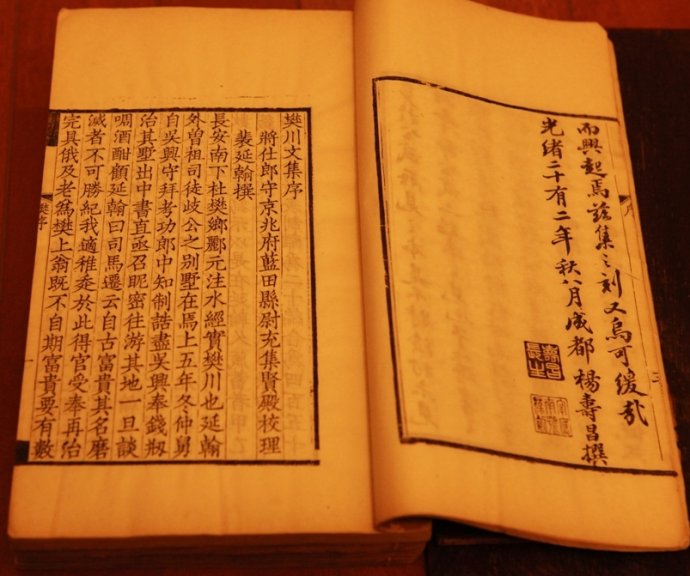 而興起焉茲集之刻又烏可緩哉
光緒二十有二年秋八月成都楊壽昌撰
樊川文集序
將仕郎守京兆府藍田縣尉充集賢殿校理
裴延翰撰
長安南下杜樊鄉酈元注水經實樊川也延翰
外曾祖司徒岐公之别墅在焉上五年冬仲舅
自吳興守拜考功郎中知制誥盡吳興奉錢剏
治其墅出中書直亟召昵密往游其地一旦談
啁酒酣顧延翰曰司馬遷云自古富貴其名磨
滅者不可勝紀我適稚㭗於此得官受奉再治
完具俄及老爲樊上翁既不自期富貴要有數
樊序